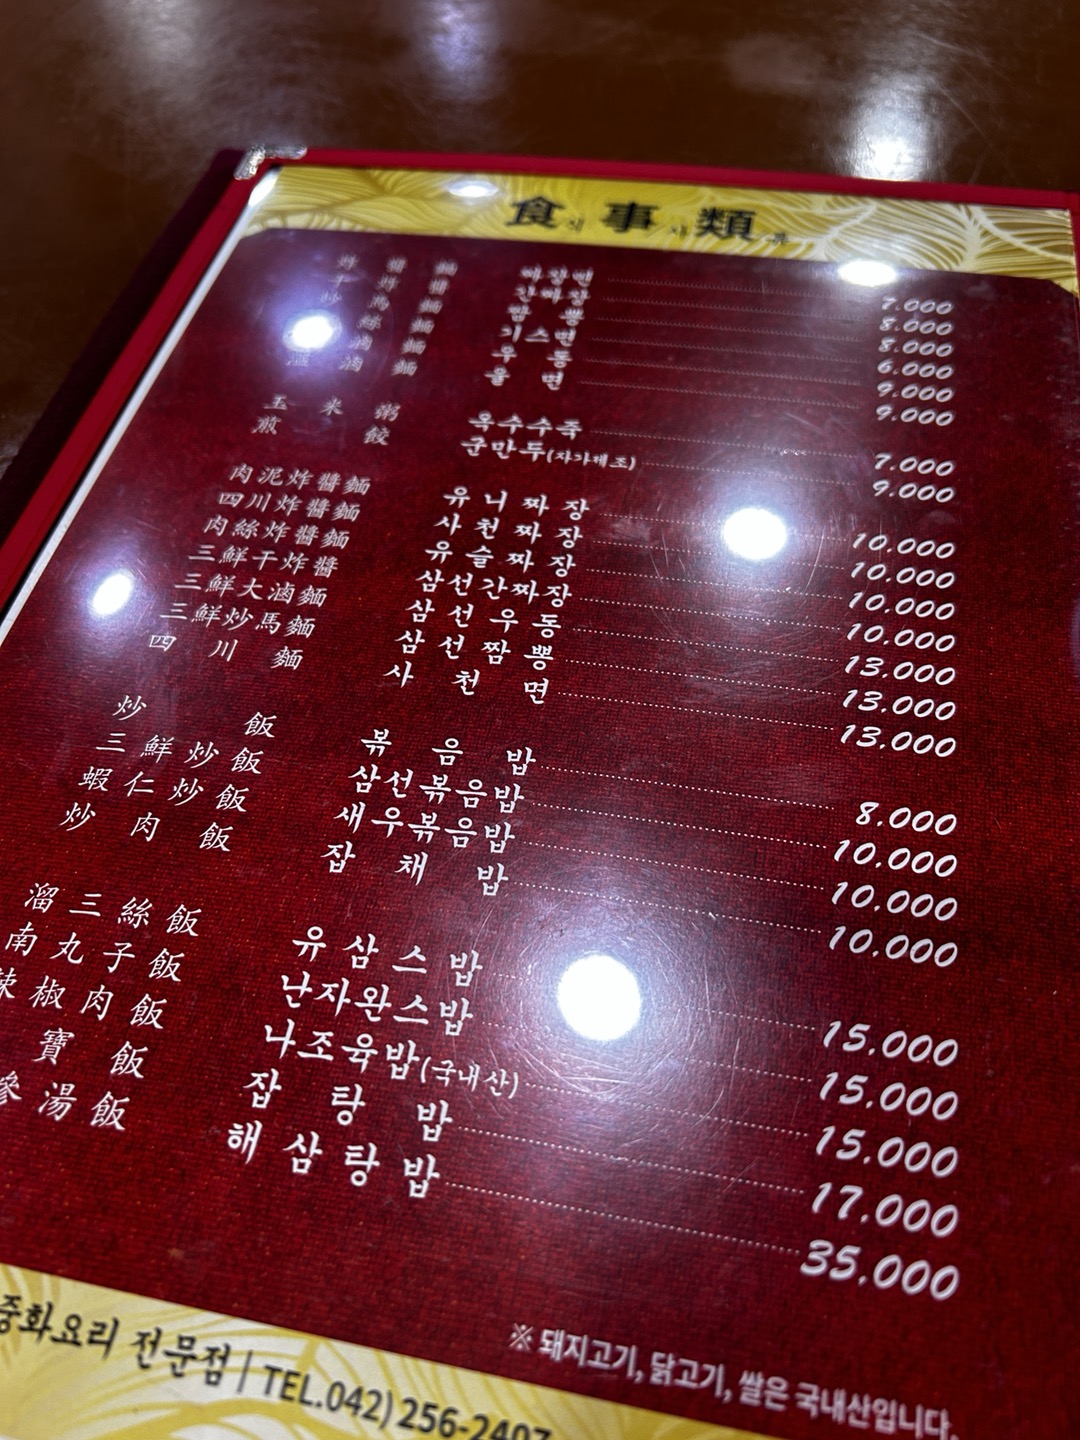 食식 事사 類류
짜장면 7.000
간짜장 8.000
짬뽕 8.000
기스면 6.000
우동 9.000
울면 9.000
玉米粥 옥수수죽 7.000
煎餃 군만두(자가제조) 9.000
肉泥炸醬麵 유니짜장 10.000
四川炸醬麵 사천짜장 10.000
肉絲炸醬麵 유슬짜장 10.000
三鮮干炸醬 삼선간짜장 10.000
三鮮大滷麵 삼선우동 13.000
三鮮炒馬麵 삼선짬뽕 13.000
四川麵 사천면 13.000
炒飯 볶음밥 8.000
三鮮炒飯 삼선볶음밥 10.000
蝦仁炒飯 새우볶음밥 10.000
炒肉飯 잡채밥 10.000
溜三絲飯 유삼스밥 15.000
南丸子飯 난자완스밥 15.000
辣椒肉飯 나조육밥(국내산) 15.000
寶飯 잡탕밥 17.000
參湯飯 해삼탕밥 35.000
※ 돼지고기, 닭고기, 쌀은 국내산입니다.
중화요리 전문점 | TEL.042) 256-2407